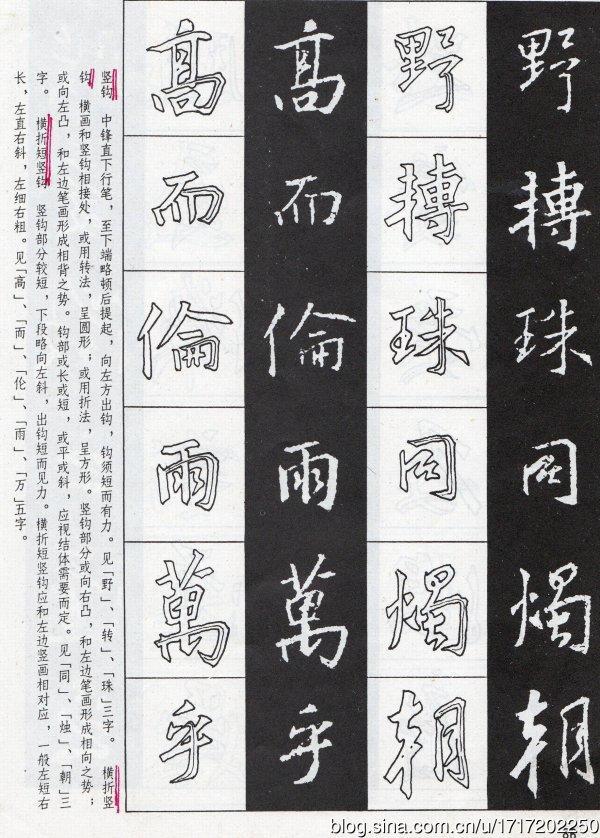 野轉珠同燭朝
野轉珠同燭朝
高而倫雨萬乎
高而倫雨萬乎
竖钩 中锋直下行笔，至下端略顿后提起，向左方出钩，钩须短而有力。见「野」、「转」、「珠」三字。 横折竖
钩 横画和竖钩相接处，或用转法，呈圆形；或用折法，呈方形。竖钩部分或向右凸，和左边笔画形成相向之势；
或向左凸，和左边笔画形成相背之势。钩部或长或短，或平或斜，应视结体需要而定。见「同」、「烛」、「朝」三
字。 横折短竖钩 竖钩部分较短，下段略向左斜，出钩短而见力。横折短竖钩应和左边竖画相对应，一般左短右
长，左直右斜，左细右粗。见「高」、「而」、「伦」、「雨」、「万」五字。
blog.sina.com.cn/u/1717202250